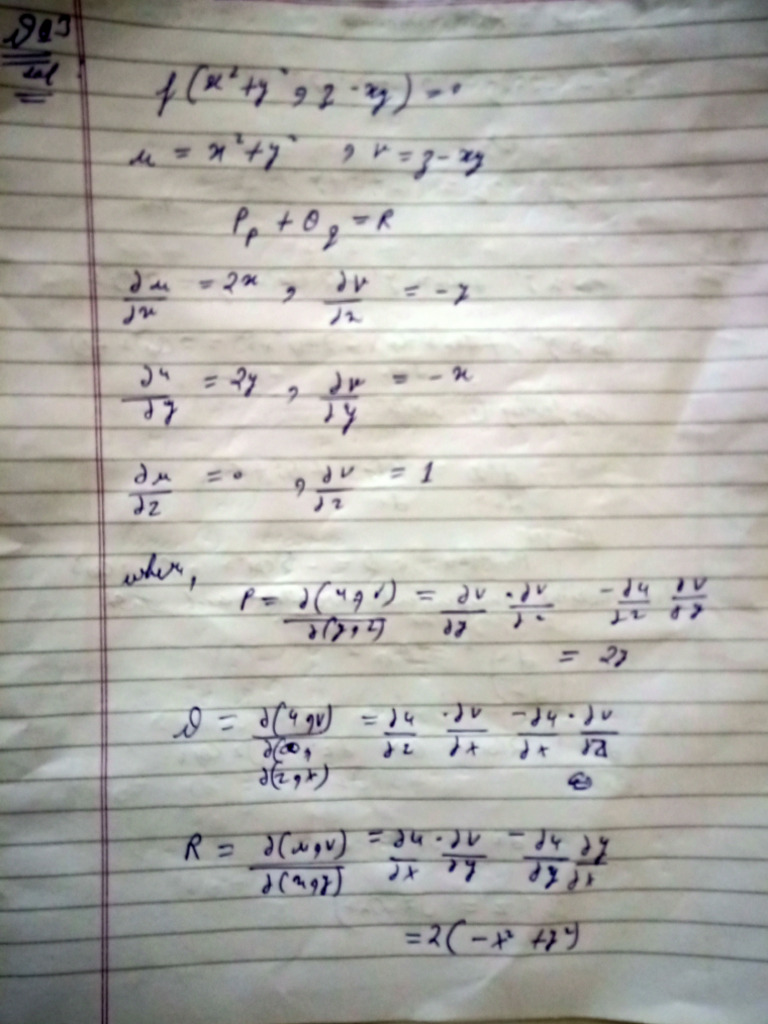 Q23
sol
f(x²+y², z-xy) = 0
u = x²+y² , v = z-xy
Pp + Qq = R
∂u/∂x = 2x , ∂v/∂x = -y
∂u/∂y = 2y , ∂v/∂y = -x
∂u/∂z = 0 , ∂v/∂z = 1
when,
P = ∂(u,v)/∂(y,z) = ∂v/∂y · ∂v/∂z - ∂u/∂z ∂v/∂y
= 2y
Q = ∂(u,v)/∂(z,x) = ∂u/∂z · ∂v/∂x - ∂u/∂x · ∂v/∂z
R = ∂(u,v)/∂(x,y) = ∂u/∂x · ∂v/∂y - ∂u/∂y ∂y/∂x
= 2(-x² + y²)